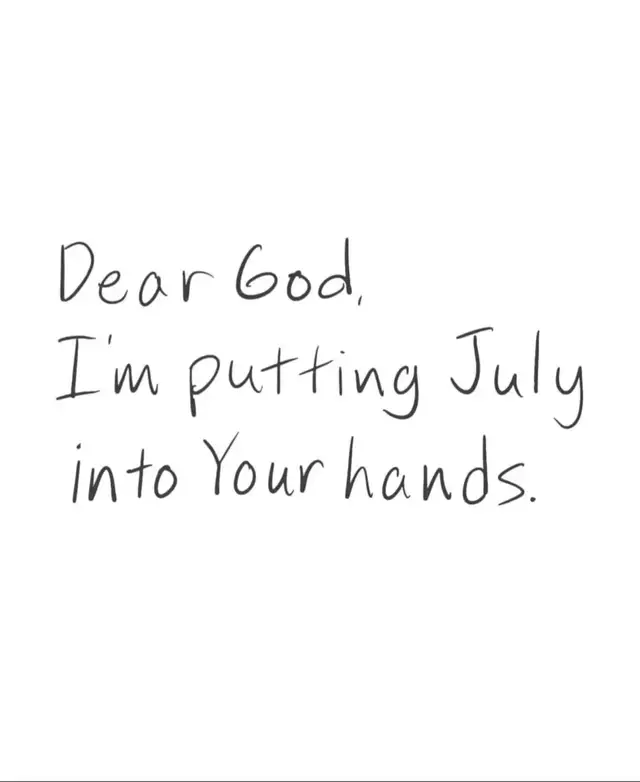 Dear God,
I'm putting July
into Your hands.